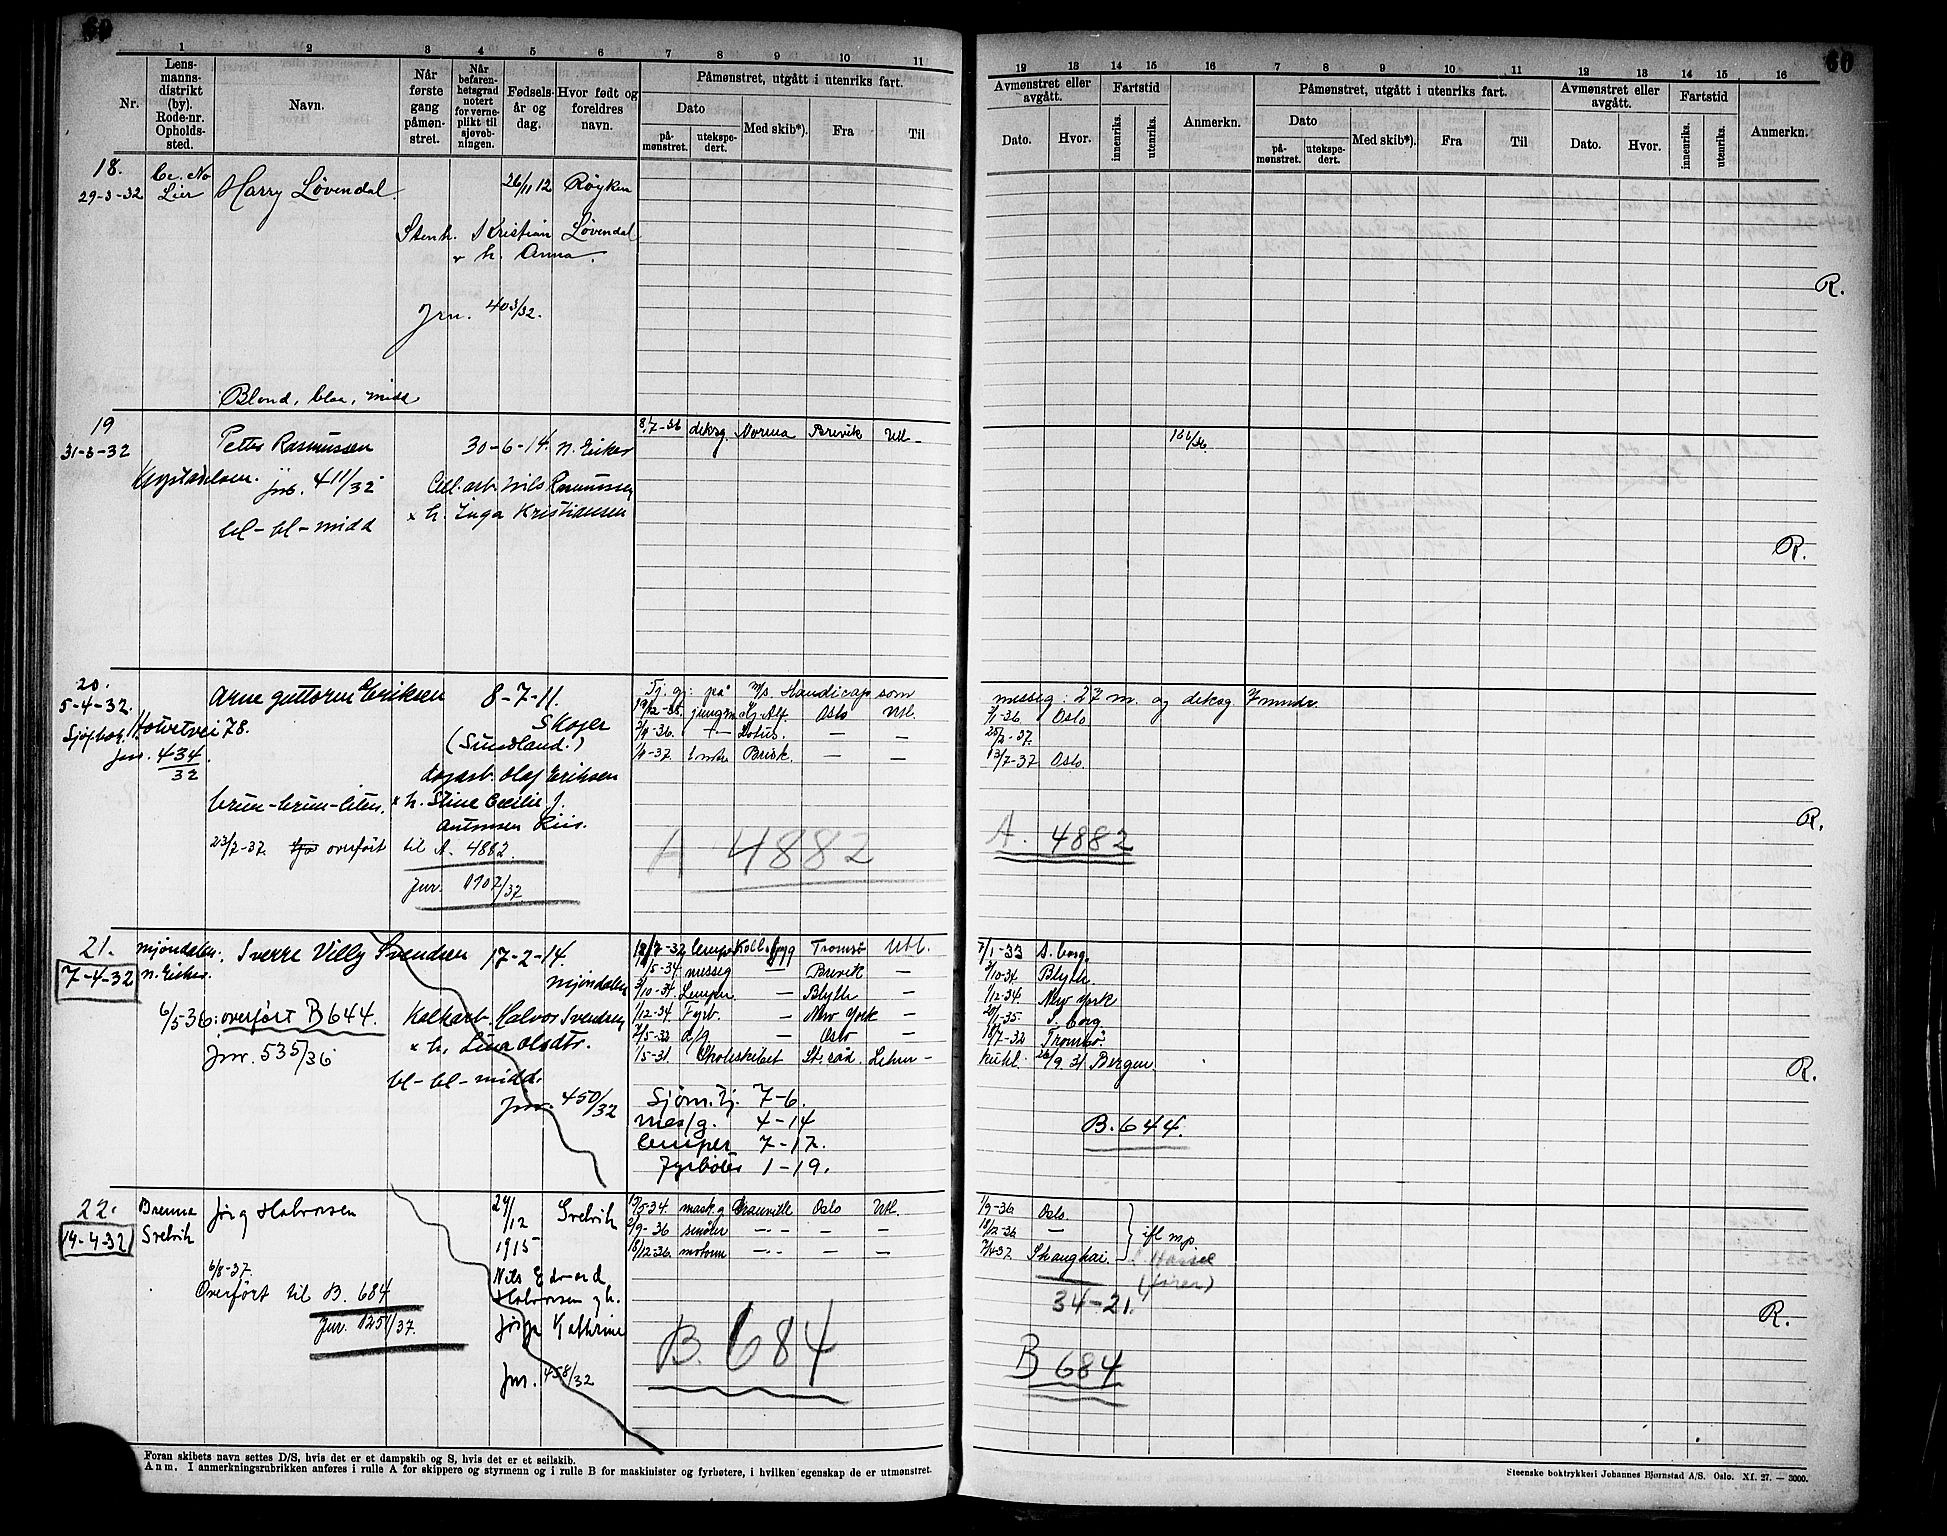 60
1 2 3 4 5 6 7 8 9 10 11
Nr.
Lens-
manns-
distrikt
(by).
Rode-nr.
Opholds-
sted.
Navn.
Når
første
gang
påmøn-
stret.
Når
befaren-
hetsgrad
notert
for verne-
plikt til
sjøveb-
ningen.
Fødsels-
år og
dag.
Hvor født og
foreldres
navn.
Påmønstret, utgått i utenriks fart.
Dato
på-
mønstret.
utekspe-
dert.
Med skib*).
Fra
Til
18.
29-3-32
Lier
Harry Løvendal
26/11 12
Røyken
Stenh. Kristian Løvendal
h. Anna.
Jrn. 403/32.
Blond, blaa, midd
19
31-3-32
Petter Rasmussen
30-6-14. N. Eiker
jnr. 411/32
Cell. arb. Nils Rasmussen
x h. Inga Kristiansen
bl-bl-midd
8/7-36 deksg. Norma Brevik Utl-
20.
5-4-32.
Arne Guttorm Eriksen
8-7-11.
Skoger
(Sundland.)
jnr. 434/32
Olaf Eriksen
x h. Stine Cecilie J.
Antonsen Riis.
brun-brun-liten.
23/7-37. overført til A. 4882.
Jnr. 1107/37
Tj. g: på m/s. Handicap som
19/12-35. jungm. Kj. Alf. Oslo Utl.
— Lotus. — —
Brisk. — —
A 4882
21.
7-4-32
Mjøndalen.
N. Eiker.
Sverre Villy Svendsen
17-2-14.
Mjøndalen
6/5 36: overført B 644.
Jnr. 535/36
Halvor Svendsen
x h. Lina Olsdtr.
bl-bl-midd.
Jnr. 450/32
18/7-32 lemper Kollbjørg Tromsø Utl.
1/5-34 messg — Brevik —
3/10-34. Lemper — Blyth —
1/12-34. Fyrb. — New York —
7/5-33 d/g — Oslo
1/5-31. Skoleskibet St. råd. Lehm-
Sjøm. Tj. 7-6.
mes/g. 4-14
lemper 7-17.
Fyrbøter 1-19.
22.
14-4-32
Svelvik
Jørg Halvorsen
24/12
1915
Svelvik
Nils Edvard
Halvorsen g h.
Kathrine
Jnr. 458/32
6/8-37.
Overført til B. 684
Jnr. 1251/37.
17/5-34. mask. g Granville Oslo Utl.
2/9-36 smører — — —
18/12-36. motorm — — —
B. 684
Foran skibets navn settes D/S, hvis det er et dampskib og S, hvis det er et seilskib.
Anm. I anmerkningsrubrikken anføres i rulle A for skippere og styrmenn og i rulle B for maskinister og fyrbøtere, i hvilken egenskap de er utmønstret.
60
12 13 14 15 16 7 8 9 10 11 12 13 14 15 16
Avmønstret eller
avgått.
Dato. Hvor.
Fartstid
innenriks.
utenriks.
Anmerkn.
Påmønstret, utgått i utenriks fart.
Dato
på-
mønstret.
utekspe-
dert.
Med skib*).
Fra
Til
Avmønstret eller
avgått.
Dato. Hvor.
Fartstid
innenriks.
utenriks.
Anmerkn.
R.
R.
messg: 27 m. og deksg 7 mndr.
3/1-36 Oslo
25/2-37.
13/7-37 Oslo.
A. 4882
R.
7/1-33 S. borg.
3/10-34 Blyth.
1/12-34. New York
20/1-35. S. borg.
18/7-32 Tromsø
26/9 31 Bergen
B. 644.
R.
1/9-36 Oslo.
18/12-36 —
7/4-37 Shanghai.
34-21.
B 684
R.
Steenske boktrykkeri Johannes Bjørnstad A/S. Oslo. XI. 27. — 3000.